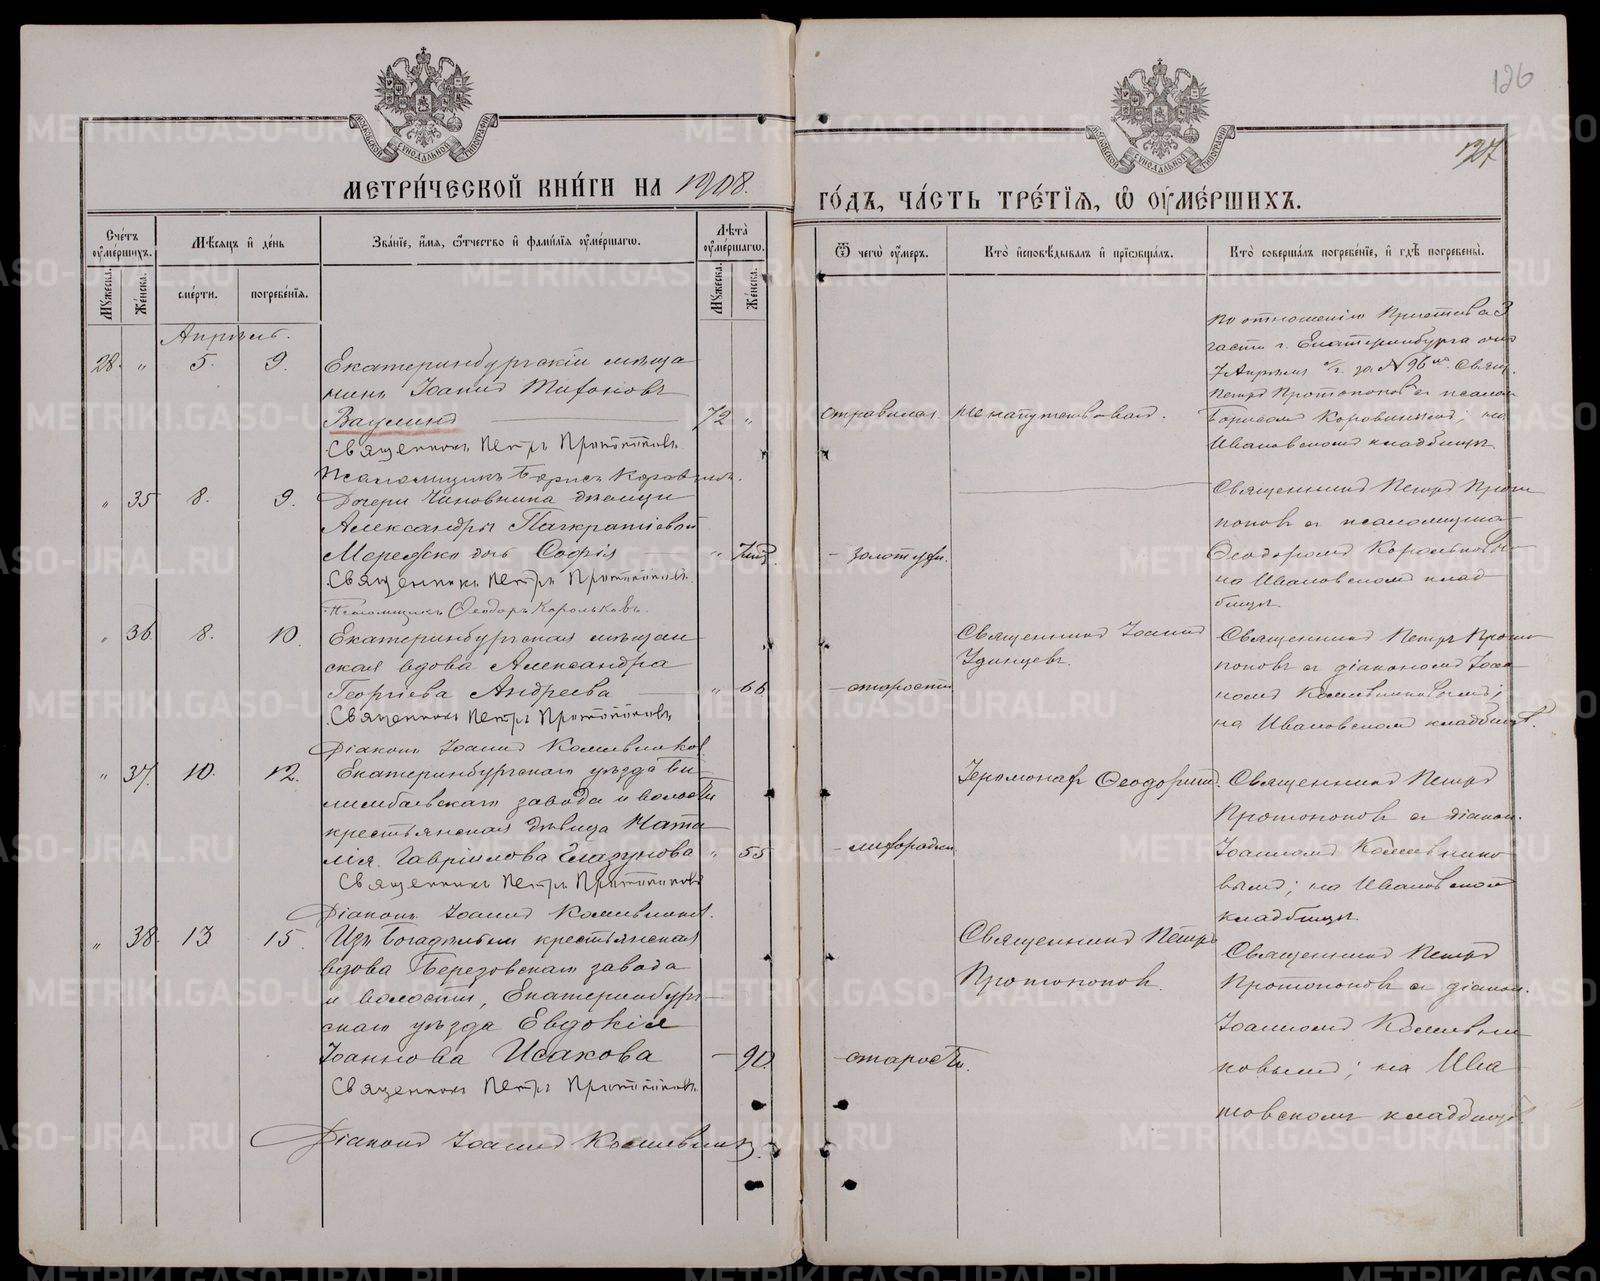 126
127
МЕТРИ́ЧЕСКОЙ КНИ́ГИ НА 1908.
ГО́ДЪ, ЧА́СТЬ ТРЕ́ТЇѦ, Ѡ҆ ОУ҆МЕ́РШИХЪ.
Сче́тъ оу҆ме́ршихъ.
Мꙋ́жеска.
Же́нска.
Мѣ́сѧцъ и҆ де́нь
сме́рти.
погребе́нїѧ.
Зва́нїе, и҆́мѧ, ѻ҆́тчество и҆ фами́лїѧ оу҆ме́ршагѡ.
Лѣ́та оу҆ме́ршагѡ.
Мꙋ́жеска.
Же́нска.
Ѿ чегѡ̀ оу҆́меръ.
Кто̀ и҆сповѣ́дывалъ и҆ прїѡбща́лъ.
Кто̀ соверша́лъ погребе́нїе, и҆ гдѣ̀ погребены̀.
Апрѣль.
28. " 5. 9.
Екатеринбургскій мѣща
нинъ Іоаннъ Тихоновъ
Ваулинъ 72 "
Священникъ Петръ Протопоповъ
Псаломщикъ Борисъ Коровинъ.
отравился.
не напутствованъ.
По отношенію Пристава 3
части г. Екатеринбурга отъ
7 Апрѣля с/г. за № 96 Свящ.
Петръ Протопоповъ съ псалом
Борисомъ Коровинымъ; на
Ивановскомъ кладбищѣ.
" 35 8. 9.
Дочери Чиновника дѣвицы
Александры Панкратіевой
дочь Софія "
Священникъ Петръ Протопоповъ
Псаломщикъ Ѳеодоръ Корольковъ.
золотухи.
Священникъ Петръ Прото
поповъ съ псаломщико
Ѳеодоромъ Корольковы
на Ивановскомъ клад
бищѣ.
" 36 8. 10.
Екатеринбургская мѣщан
ская вдова Александра
Георгіева Андреева " 66
Священникъ Петръ Протопоповъ
Діаконъ Іоаннъ Колшевниковъ
старости
Священникъ Іоаннъ
Удинцевъ.
Священникъ Петръ Прото
поповъ съ діакономъ Іоан
номъ
на Ивановскомъ кладбищѣ.
" 37. 10. 12.
Екатеринбургскаго уѣзда Би
лимбаевскаго завода и волости
крестьянская дѣвица Ната
лія Гавріилова Глазунова " 55
Священникъ Петръ Протопоповъ
Діаконъ Іоаннъ
лихорадки
Іеромонахъ Ѳеодоритъ.
Священникъ Петръ
Протопоповъ съ діакон.
Іоанномъ
вымъ; на Ивановскомъ
кладбищѣ.
" 38. 13 15.
Изъ богадѣльни крестьянская
вдова Березовскаго завода
и волости, Екатеринбург
скаго уѣзда Евдокія
Іоаннова Исакова — 90.
Священникъ Петръ Протопоповъ
Діаконъ Іоаннъ
старости.
Священникъ Петръ
Протопоповъ.
Священникъ Петръ
Протопоповъ съ діакон.
Іоанномъ
ковымъ; на Ива
новскомъ кладбищѣ
METRIKI.GASO-URAL.RU